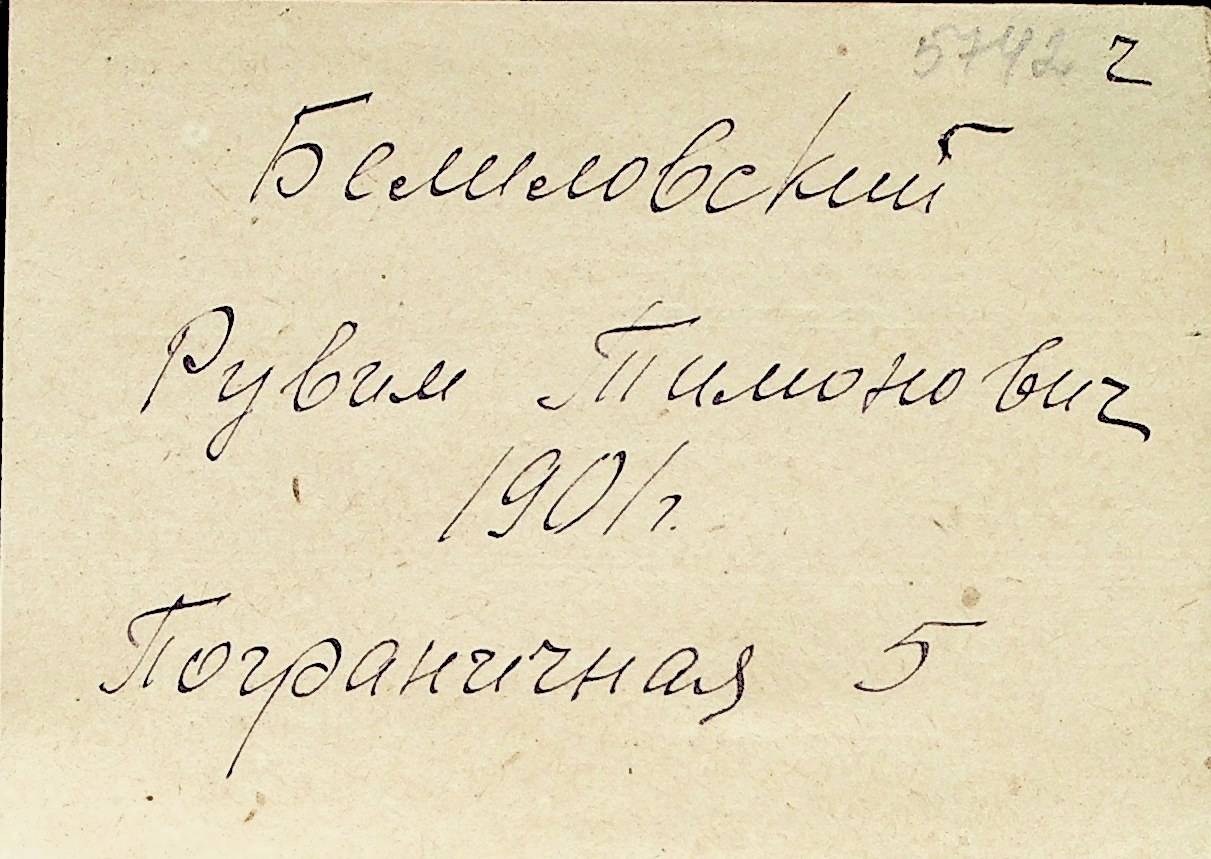 5742 ч
Белиловский
Рувим Тимонович
1901г.
Пограничная 5